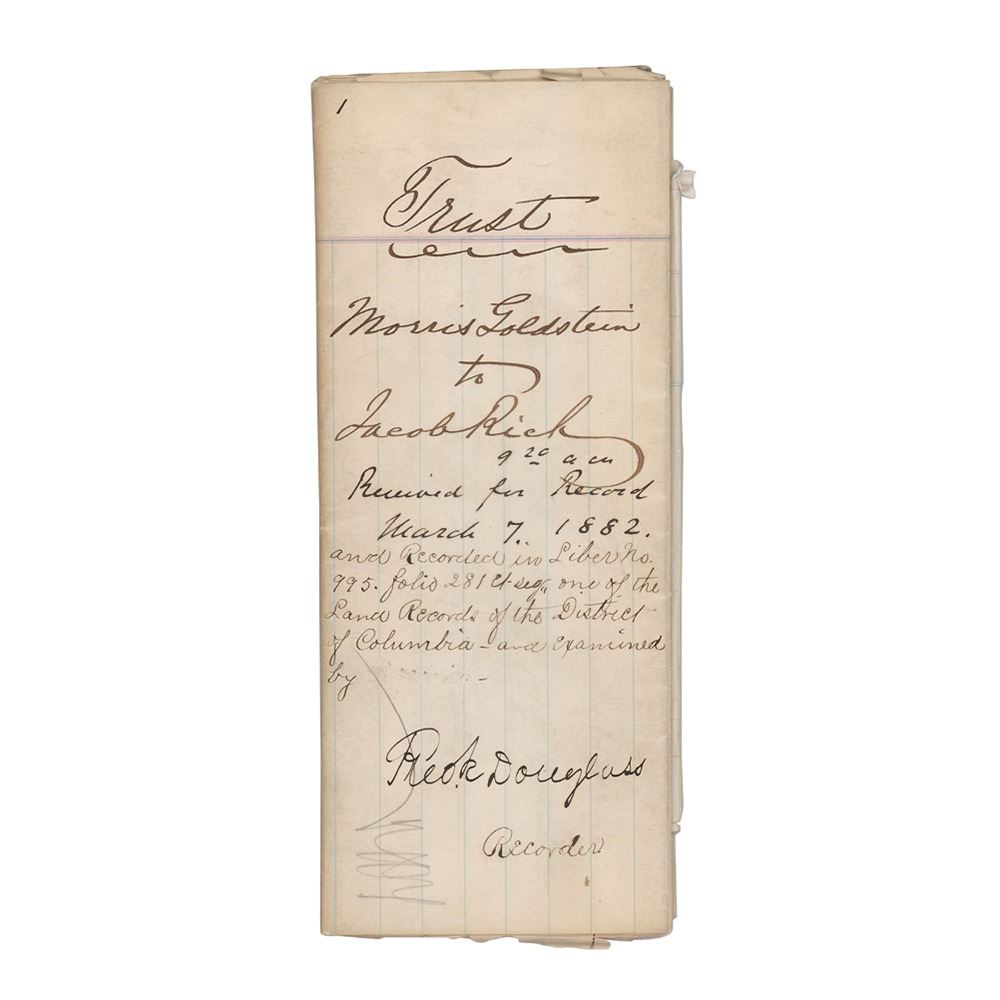 1
Trust
Morris Goldstein
to
Jacob Rich
9 20 a m
Received for Record
March 7. 1882.
and Recorded in Liber No.
995. folio 281 et seq., one of the
Land Records of the District
of Columbia - and examined
by
Fredk Douglass
Recorder